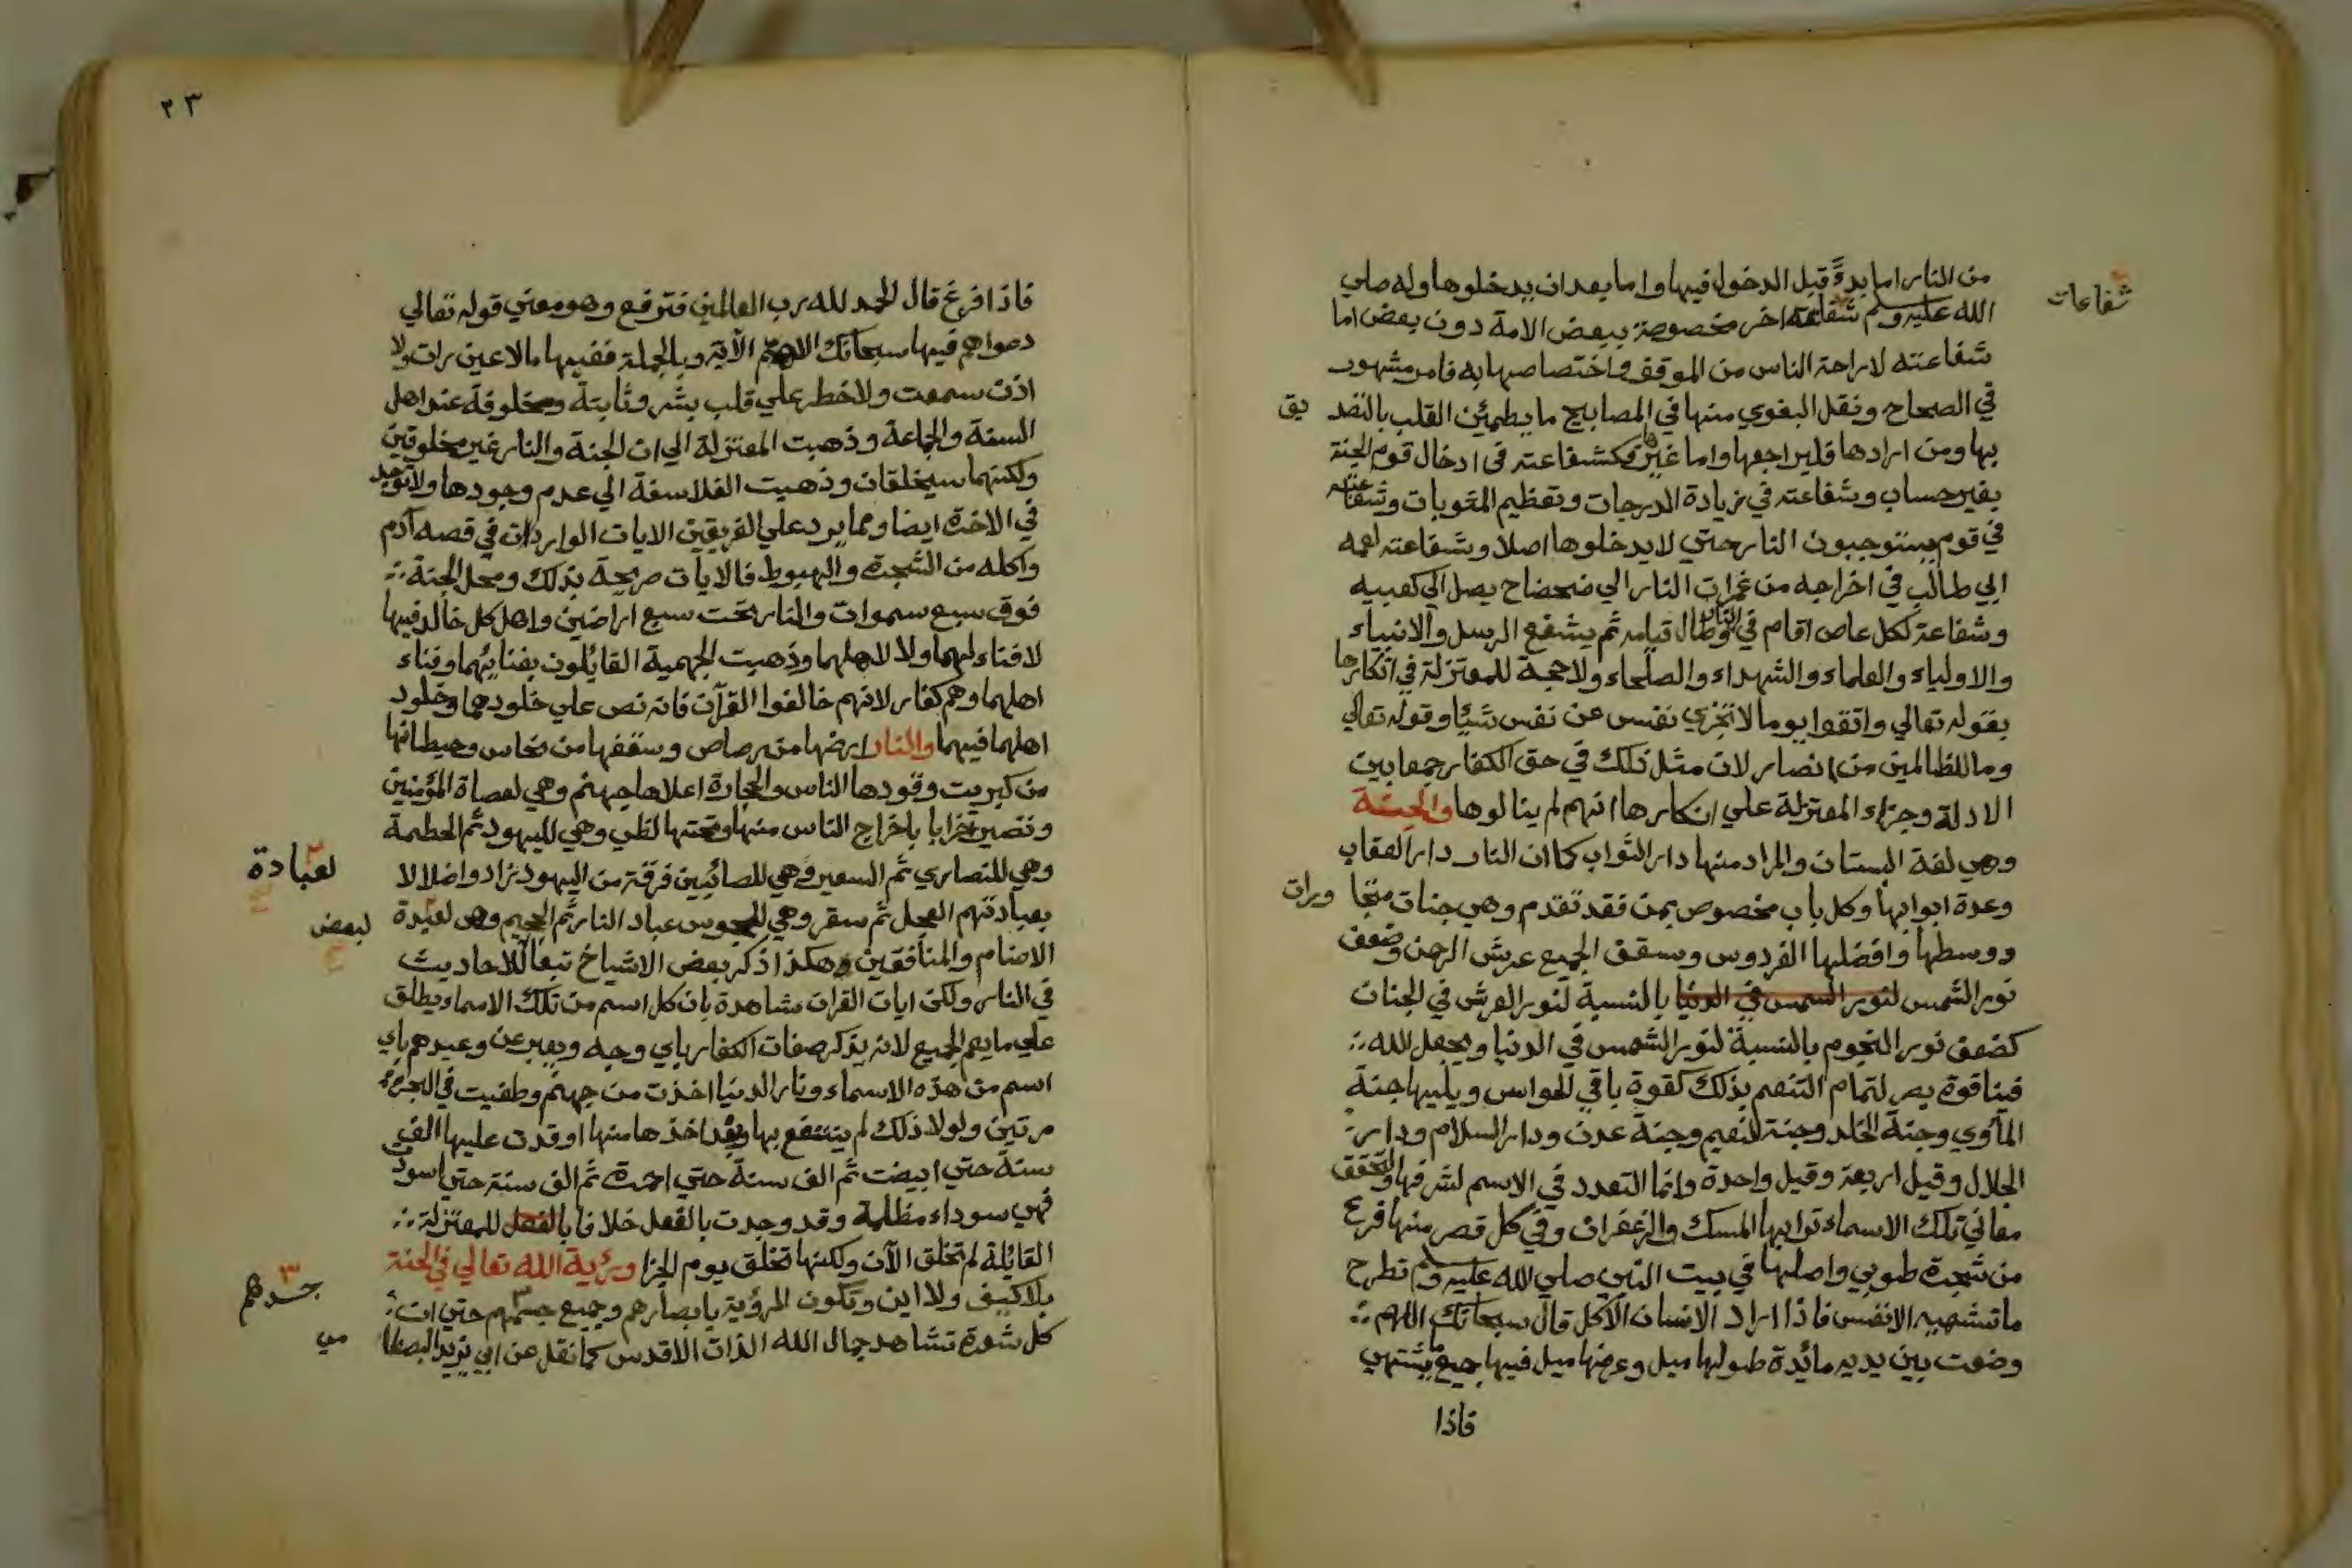 من النار اما بدءً قبل الدخول فيها واما بعد ان يدخلوها وله صلي
شفاعات
الله عليه وسلم شفاعة اخر مخصوصة ببعض الامة دون بعض اما
شفاعته لاراحة الناس من الموقف واختصاصها به فامر مشهور
في الصحاح ونقل البغوي منها في المصابيح ما يطمئن القلب بالتصد
يق
بها ومن ارادها فليراجعها واما غيرها فكشفاعته في ادخال قوم الجنة
بغير حساب وشفاعته في زيادة الدرجات وتعظيم المثوبات وشفاعته
في قوم يستوجبون النار حتي لا يدخلوها اصلا وشفاعته لعمه
ابي طالب في اخراجه من غمرات النار الي ضحضاح يصل الي كعبيه
وشفاعة لكل عاص اقام في النار وطال قيامه ثم يشفع الرسل والانبياء
والاولياء والعلماء والشهداء والصلحاء ولا حجة للمعتزلة في انكارها
بقوله تعالي واتقوا يوما لا تجزي نفس عن نفس شيئا وقوله تعالي
وما للظالمين من انصار لان مثل ذلك في حق الكفار جمعا بين
الادلة وجزاء المعتزلة علي انكارها انهم لم ينالوها والجنة
وهي لغة البستان والمراد منها دار الثواب كما ان النار دار العقاب
وعدة ابوابها وكل باب مخصوص بمن فقد تقدم وهي جنات متجا
ورات
ووسطها وافضلها الفردوس وسقف الجميع عرش الرحمن وضعف
نور الشمس لنور الشمس في الدنيا بالنسبة لنور العرش في الجنان
كضعف نور النجوم بالنسبة لنور الشمس في الدنيا ويجعل الله
فينا قوة بصر لتمام التنعم بذلك كقوة باقي الحواس ويليها جنة
المأوي وجنة الخلد وجنة النعيم وجنة عدن ودار السلام ودار
الجلال وقيل اربعة وقيل واحدة وانما التعدد في الاسم لشرفها ولتحقق
معاني تلك الاسماء ترابها المسك والزعفران وفي كل قصر منها فرع
من شجرة طوبي واصلها في بيت النبي صلي الله عليه وسلم تطرح
ما تشتهيه الانفس فاذا اراد الانسان الاكل قال سبحانك اللهم
وضعت بين يديه مائدة طولها ميل وعرضها ميل فيها جميع ما يشتهي
فاذا
٢٣
فاذا فرغ قال الحمد لله رب العالمين فترفع وهو معني قوله تعالي
دعواهم فيها سبحانك اللهم الآية وبالجملة ففيها ما لا عين رات ولا
اذن سمعت ولا خطر علي قلب بشر وثابتة ومخلوقة عند اهل
السنة والجماعة وذهبت المعتزلة الي ان الجنة والنار غير مخلوقتين
ولكنهما سيخلقان وذهبت الفلاسفة الي عدم وجودها ولا توجد
في الاخرة ايضا ومما يرد علي الفريقين الايات الواردات في قصه آدم
واكله من الشجرة والهبوط فالايات صريحة بذلك ومحل الجنة
فوق سبع سموات والنار تحت سبع اراضين واهل كل خالد فيها
لا فناء لهما ولا لاهلهما وذهبت الجهمية القائلون بفنائهما وفناء
اهلهما وهم كفار لانهم خالفوا القرآن فانه نص علي خلودهما وخلود
اهلهما فيهما والنار ارضها من رصاص وسقفها من نحاس وحيطانها
من كبريت وقودها الناس والحجارة اعلاها جهنم وهي لعصاة المؤمنين
وتصير خرابا باخراج الناس منها وتحتها لظي وهي لليهود ثم الحطمة
وهي للنصاري ثم السعير وهي للصائبين فرقة من اليهود زادوا ضلالا
لعبادة
بعبادتهم العجل ثم سقر وهي للمجوس عباد النار ثم الجحيم وهي لعبدة
لبعض
الاصنام والمنافقين وهكذا ذكر بعض الاشياخ تبعا للاحاديث
في النار ولكن ايات القران شاهدة بان كل اسم من تلك الاسما ويطلق
علي ما يعم الجميع لانه يذكر صفات الكفار باي وجه ويعبر عن وعيدهم باي
اسم من هذه الاسماء ونار الدنيا اخذت من جهنم وطفيت في البحر
مرتين ولولا ذلك لم ينتفع بها وبعد اخذها منها اوقدت عليها الف
سنة حتي ابيضت ثم الف سنة حتي احمرت ثم الف سنة حتي اسودت
فهي سوداء مظلمة وقد وجدت بالفعل خلافا بالفعل للمعتزلة
القائلة لم تخلق الآن ولكنها تخلق يوم الجزا ورئية الله تعالي في الجنة
بلا كيف ولا اين وتكون المرؤية بابصارهم وجميع جسمهم حتي ان
جسدهم
كل شعرة تشاهد جمال الله الذات الاقدس كما نقل عن ابي يزيد البصطا
مي